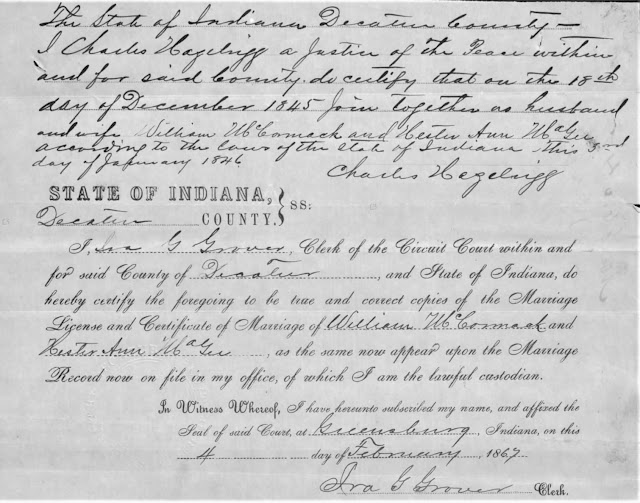 The State of Indiana Decatur County —
I Charles Hazelrigg a Justice of the Peace within
and for said County do certify that on the 18th
day of December 1845 Join together as husband
and wife William McCormack and Hester Ann McGee
according to the laws of the state of Indiana this 3rd
day of January 1846
Charles Hazelrigg
STATE OF INDIANA,
Decatur COUNTY. } SS:
I, Ira G Grover, Clerk of the Circuit Court within and
for said County of Decatur, and State of Indiana, do
hereby certify the foregoing to be true and correct copies of the Marriage
License and Certificate of Marriage of William McCormack and
Hester Ann McGee, as the same now appear upon the Marriage
Record now on file in my office, of which I am the lawful custodian.
In Witness Whereof, I have hereunto subscribed my name, and affixed the
Seal of said Court, at Greensburg, Indiana, on this
4 day of February, 1867
Ira G Grover Clerk.